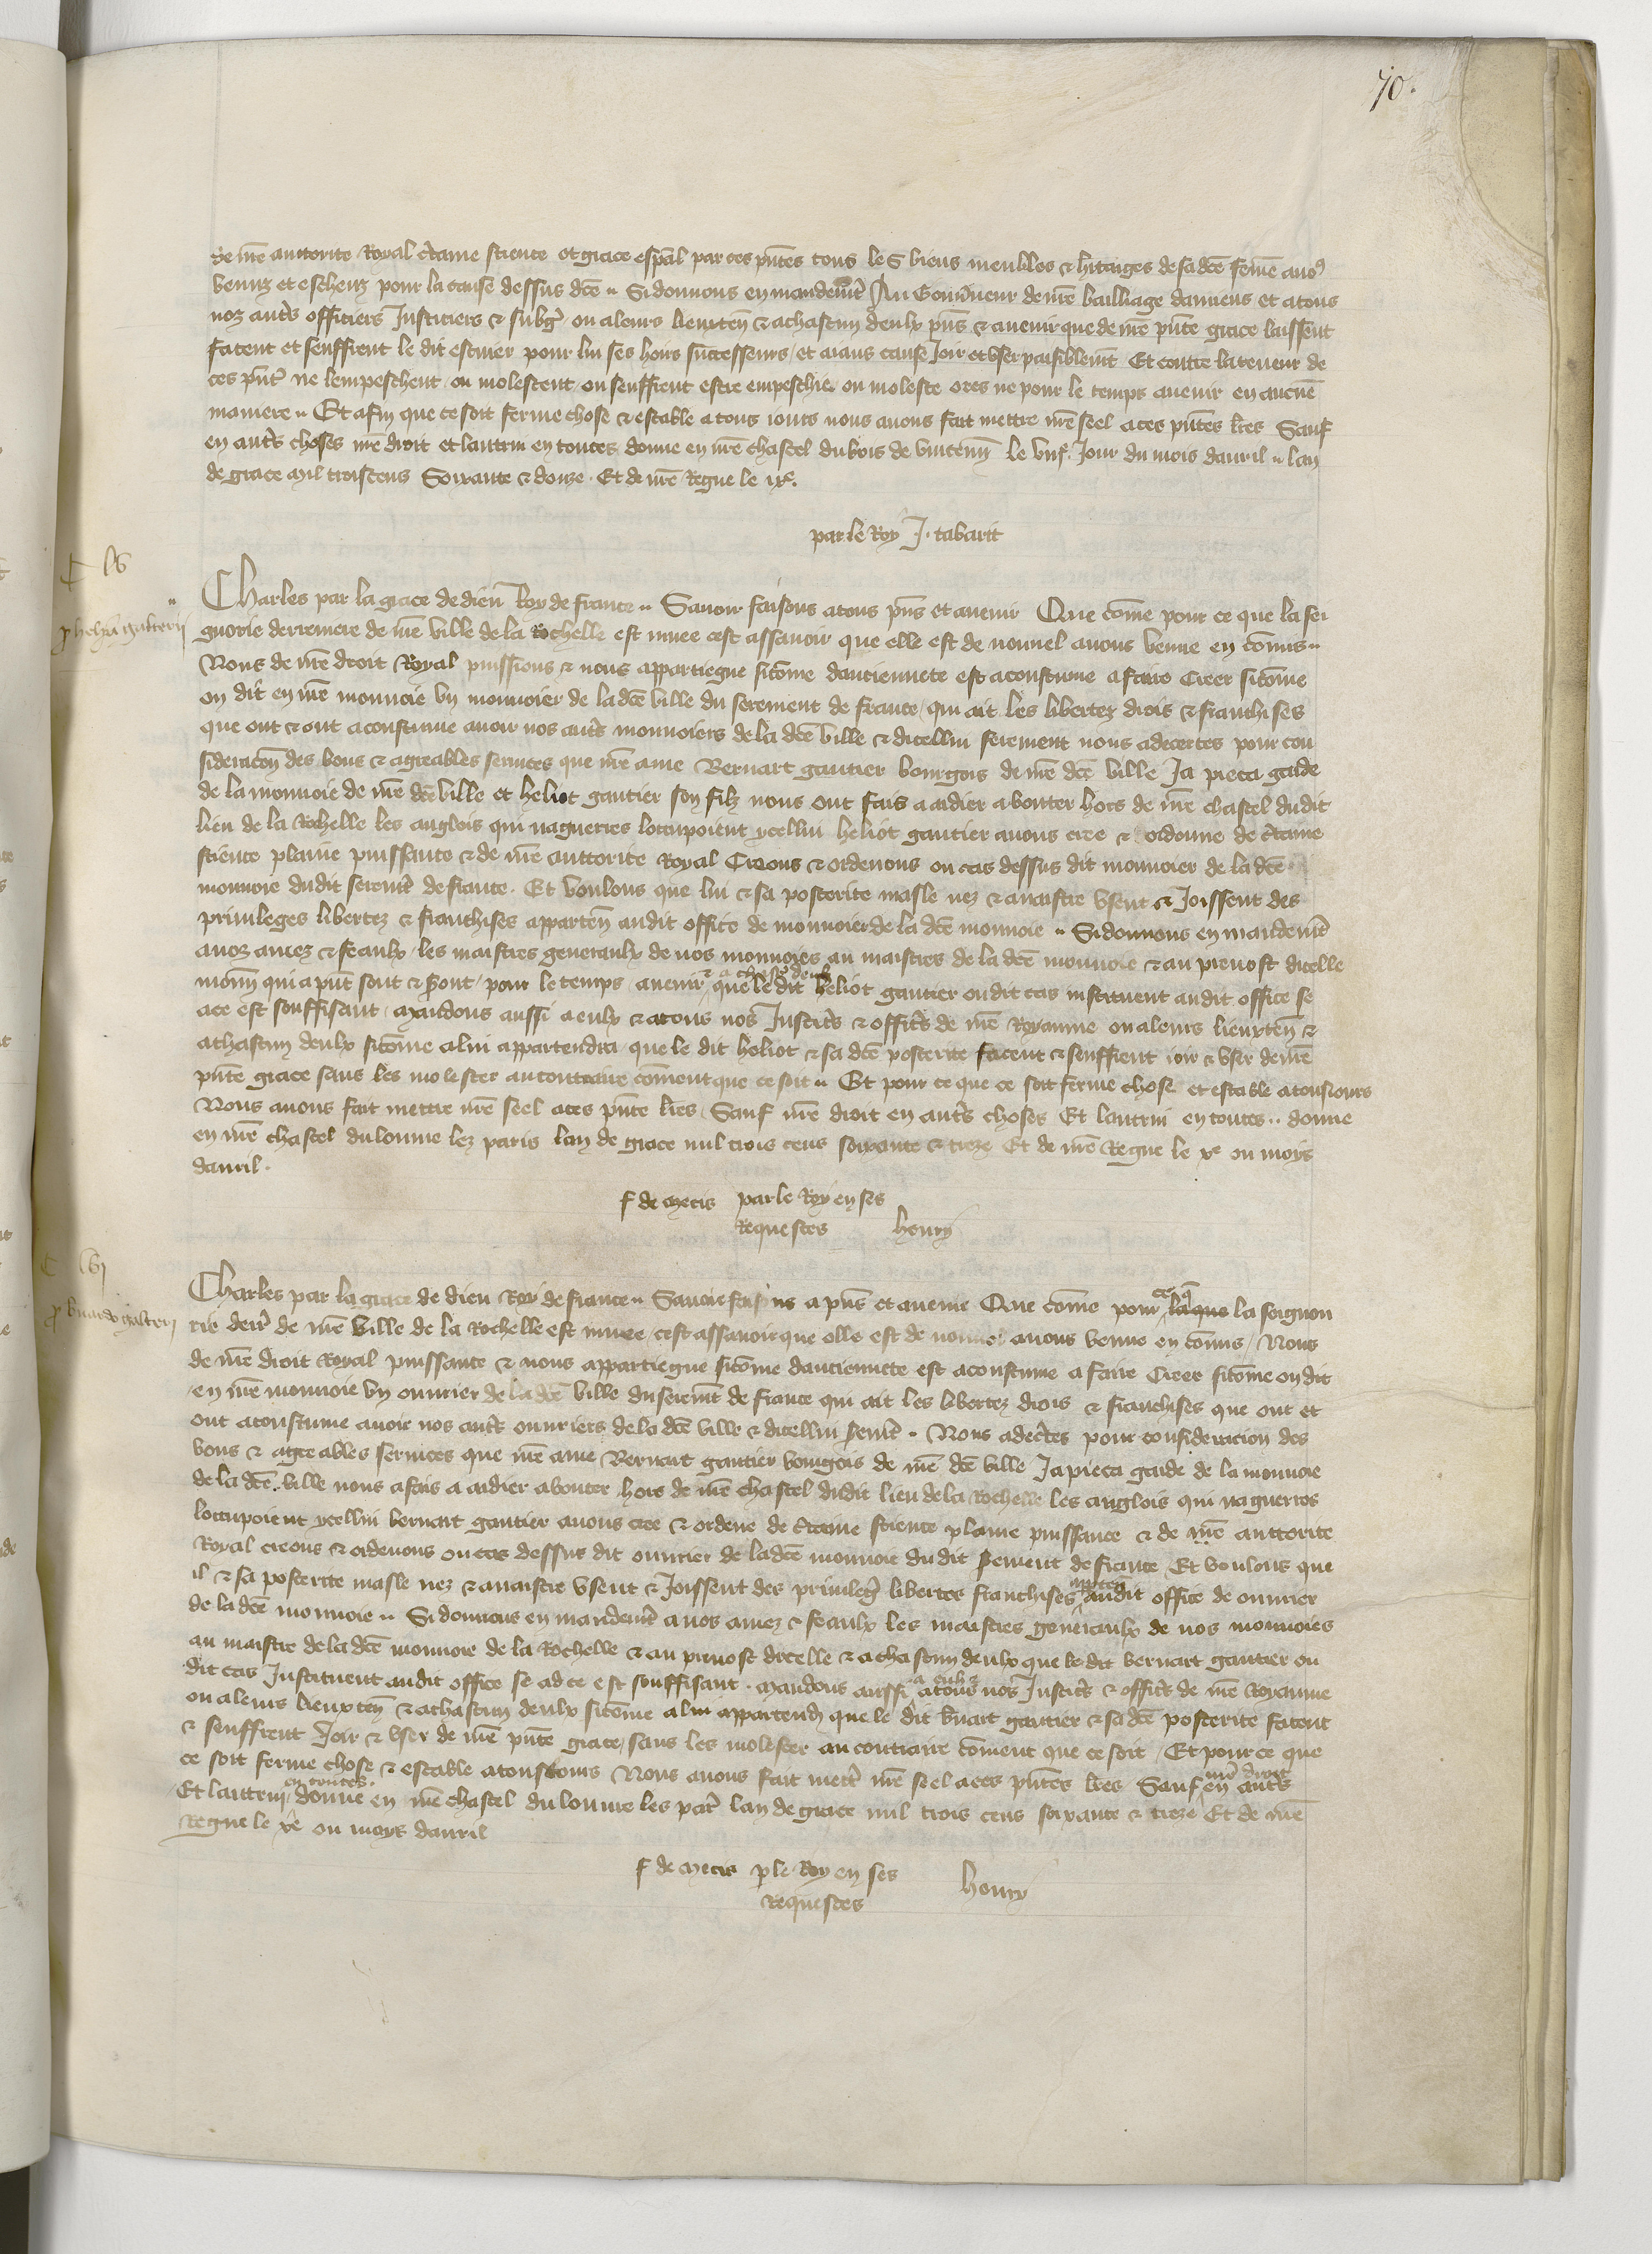 70.
de nr̄e auctorite Royal c̄taine science et grace esp̄al par ces pn̄tes tous les biens meubles & h̄itaiges de sa dc̄e feme a nos
venuz et escheuz pour la cause dessus dc̄e .. Si donnons en mandem̄t Au Gouv̄neur de nr̄e bailliage damiens et a tous
noz aut̄s officiers Justiciers & subḡ ou a leurs lieuxten̄ & a chascun deulx pn̄s & avenir que de nr̄e pn̄te grace laissent
facent et seuffrent le dit escuier pour lui ses hoirs successeurs / et aians cause Joir et user paisiblem̄t Et contre la teneur de
ces pn̄t̄ ne lempeschent / ou molestent / ou seuffrent estre empeschie / ou moleste ores ne pour le temps avenir en aucun̄e
maniere .. Et afin que ce soit ferme chose & estable a tous iours nous avons fait mettre nr̄e seel a ces pn̄tes lr̄es Sauf
en aut̄s choses nr̄e droit et lautrui en toutes donne en nr̄e chastel du bois de vincenn̄ le Jour du mois davril .. lan
de grace Mil troiscens Soixante & douze . Et de nr̄e Regne le ixe.
par le Roy J. tabarit
C lv
p̄ helya galterii
Charles par la grace de dieu Roy de france .. Savoir faisons a tous pn̄s et avenir Que com̄e pour ce que la sei
gnorie derreniere de nr̄e ville de la Rochelle est muee cest assavoir que elle est de nouvel a nous venue en com̄us ..
Nous de nr̄e droit Royal puissions & nous appartiegne sicom̄e danciennete est acoustume a faire Creer sicom̄e
on dit en nr̄e monnoie un monnoier de la dc̄e ville du serement de france / qui ait les libertez drois & franchises
que ont & ont acoustume avoir nos aut̄s monnoiers de la dc̄e ville & dicellui serement nous adecertes pour con
sideracōn des bons & agreables services que nr̄e ame Bernart gautier bourgois de nr̄e dc̄e ville Ja pieca garde
de la monnoie de nr̄e dc̄e ville et heliot gautier son filz nous ont fais a aidier a bouter hors de nr̄e chastel du dit
lieu de la Rochelle les anglois qui nagueres loccupoient ycellui heliot gautier avons cree & ordonne de c̄taine
science plaine puissance & de nr̄e auctorite Royal Creons & ordenons ou cas dessus dit monnoier de la dc̄e
monnoie du dit serem̄t de france . Et voulons que lui & sa posterite masle nez & a naistre usent & Joissent des
privileges libertez & franchises apparten̄ au dit office de monnoier de la dc̄e monnoie .. Si donnons en mandem̄t
a noz amez & feaulx / les maistres generaulx de nos monnoies au maistres de la dc̄e monnoie & au prevost dicelle
monn̄ qui a pn̄t sont & s̄ont / pour le temps avenir & a chas̄ deulx que le dit heliot gautier ou dit cas instituent au dit office se
a ce est souffisant / Mandons aussi a eulx & a tous nos Justic̄s & offic̄s de nr̄e Royaume ou a leurs lieuxten̄ &
a chascun deulx sicom̄e a lui appartendra que le dit heliot & sa dc̄e posterite facent & seuffrent ioir & user de nr̄e
pn̄te grace sans les molester au contraire com̄ent que ce soit .. Et pour ce que ce soit ferme chose et estable a tousiours
Nous avons fait mettre nr̄e seel a ces pn̄te lr̄es / Sauf nr̄e droit en aut̄s choses Et lautrui en toutes .. donne
en nr̄e chastel du louvre lez paris lan de grace mil trois cens soixante & treze Et de nr̄e Regne le xe ou moys
davril .
f de Metis par le Roy en ses
Requestes henry
C lvi
p̄ bn̄ardo galterii
Charles par la grace de dieu Roy de france .. Savoir faisons a pn̄s et avenir Que com̄e pour ce q̄ la que la seignou
rie derr̄ de nr̄e ville de la Rochelle est muee / cest assavoir que elle est de nouvel a nous venue en com̄us / Nous
de nr̄e droit Royal puissance & nous appartiegne sicom̄e danciennete est acoustume a faire Creer sicom̄e on dit
en nr̄e monnoie un ouvrier de la dc̄e ville du serem̄t de france qui ait les libertez drois & franchises que ont et
ont acoustume avoir nos aut̄s ouvriers de la dc̄e ville & dicellui s̄em̄t . Nous adec̄tes pour consideracion des
bons & agreables services que nr̄e ame Bernart gautier bourgois de nr̄e dc̄e ville Ja pieca garde de la monnoie
de la dc̄e ville nous a fais a aidier a bouter hors de nr̄e chastel du dit lieu de la Rochelle les anglois qui nagueres
loccupoient ycellui bernart gautier avons cree & ordene de c̄taine science plaine puissance & de nr̄e auctorite
Royal creons & ordenons ou cas dessus dit ouvrier de la dc̄e monnoie du dit s̄ement de france Et voulons que
il & sa posterite masle nez & a naistre usent & Joissent des privileḡ libertes franchises apparten̄ au dit office de ouvrier
de la dc̄e monnoie .. Si donnons en mandem̄t a nos amez & feaulx les maistres generaulx de nos monnoies
au maistre de la dc̄e monnoie de la Rochelle & au prevost dicelle & a chascun deulx que le dit bernart gautier ou
dit cas Instituent au dit office se ad ce est souffisant . Mandons aussi a eulx & a tous nos Justic̄s & offic̄s de nr̄e Royaume
ou a leurs lieuxten̄ & a chascun deulx sicom̄e a lui appartend̄ que le dit bn̄art gautier & sa dc̄e posterite facent
& seuffrent Joir & user de nr̄e pn̄te grace / sans les molester au contraire com̄ent que ce soit / Et pour ce que
ce soit ferme chose & estable a tousiours Nous avons fait mett̄ nr̄e seel a ces pn̄tes lr̄es Sauf nr̄e droit en aut̄s
Et lautrui en toutes . donne en nr̄e chastel du louvre les par̄ lan de grace mil trois cens soixante & treze Et de nr̄e
Regne le xe ou moys davril
f de Metis p̄ le Roy en ses
Requestes henry